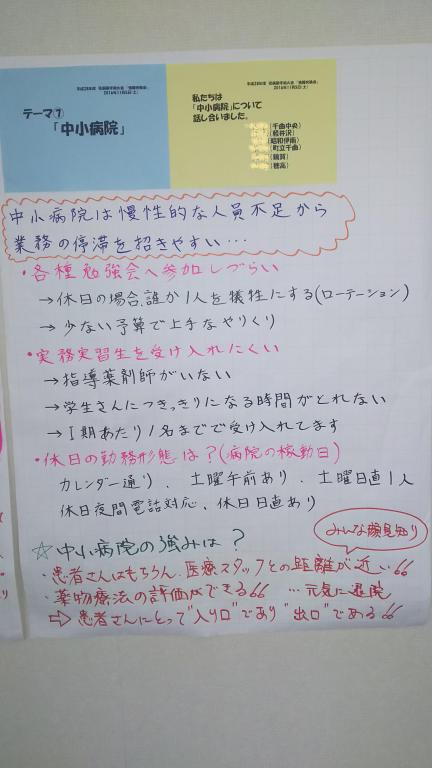 テーマ⑦
「中小病院」
私たちは
「中小病院」について
話し合いました。
(千曲中央)
(軽井沢)
(昭和伊南)
(町立千曲)
(鶴賀)
(穂高)
中小病院は慢性的な人員不足から
業務の停滞を招きやすい…
・各種勉強会へ参加しづらい
→休日の場合、誰か1人を犠牲にする(ローテーション)
→少ない予算で上手なやりくり
・実務実習生を受け入れにくい
→指導薬剤師がいない
→学生さんにつきっきりになる時間がとれない
→1期あたり1名までで受け入れてます
・休日の勤務形態は?(病院の稼動日)
カレンダー通り、土曜午前あり、土曜日直1人
休日夜間電話対応、休日日直あり
☆中小病院の強みは?
みんな顔見知り
・患者さんはもちろん、医療スタッフとの距離が近い
・薬物療法の評価ができる …元気に退院
⇨患者さんにとって"入り口"であり"出口"である